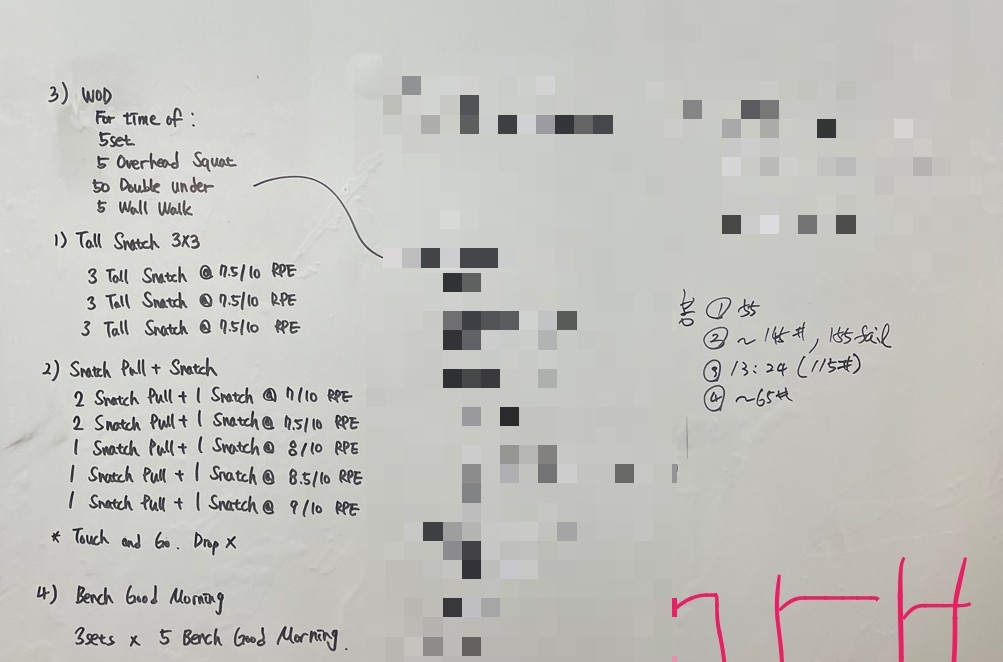 3) WOD
For time of :
5set
5 Overhead Squat
50 Double under
5 Wall Walk
1) Tall Snatch 3x3
3 Tall Snatch @ 7.5/10 RPE
3 Tall Snatch @ 7.5/10 RPE
3 Tall Snatch @ 7.5/10 RPE
2) Snatch Pull + Snatch
2 Snatch Pull + 1 Snatch @ 7/10 RPE
2 Snatch Pull + 1 Snatch @ 7.5/10 RPE
1 Snatch Pull + 1 Snatch @ 8/10 RPE
1 Snatch Pull + 1 Snatch @ 8.5/10 RPE
1 Snatch Pull + 1 Snatch @ 9/10 RPE
* Touch and Go. Drop X
4) Bench Good Morning
3sets x 5 Bench Good Morning.
① 55
② ~ 145#, 155 fail
③ 13:24 (115#)
④ ~65#